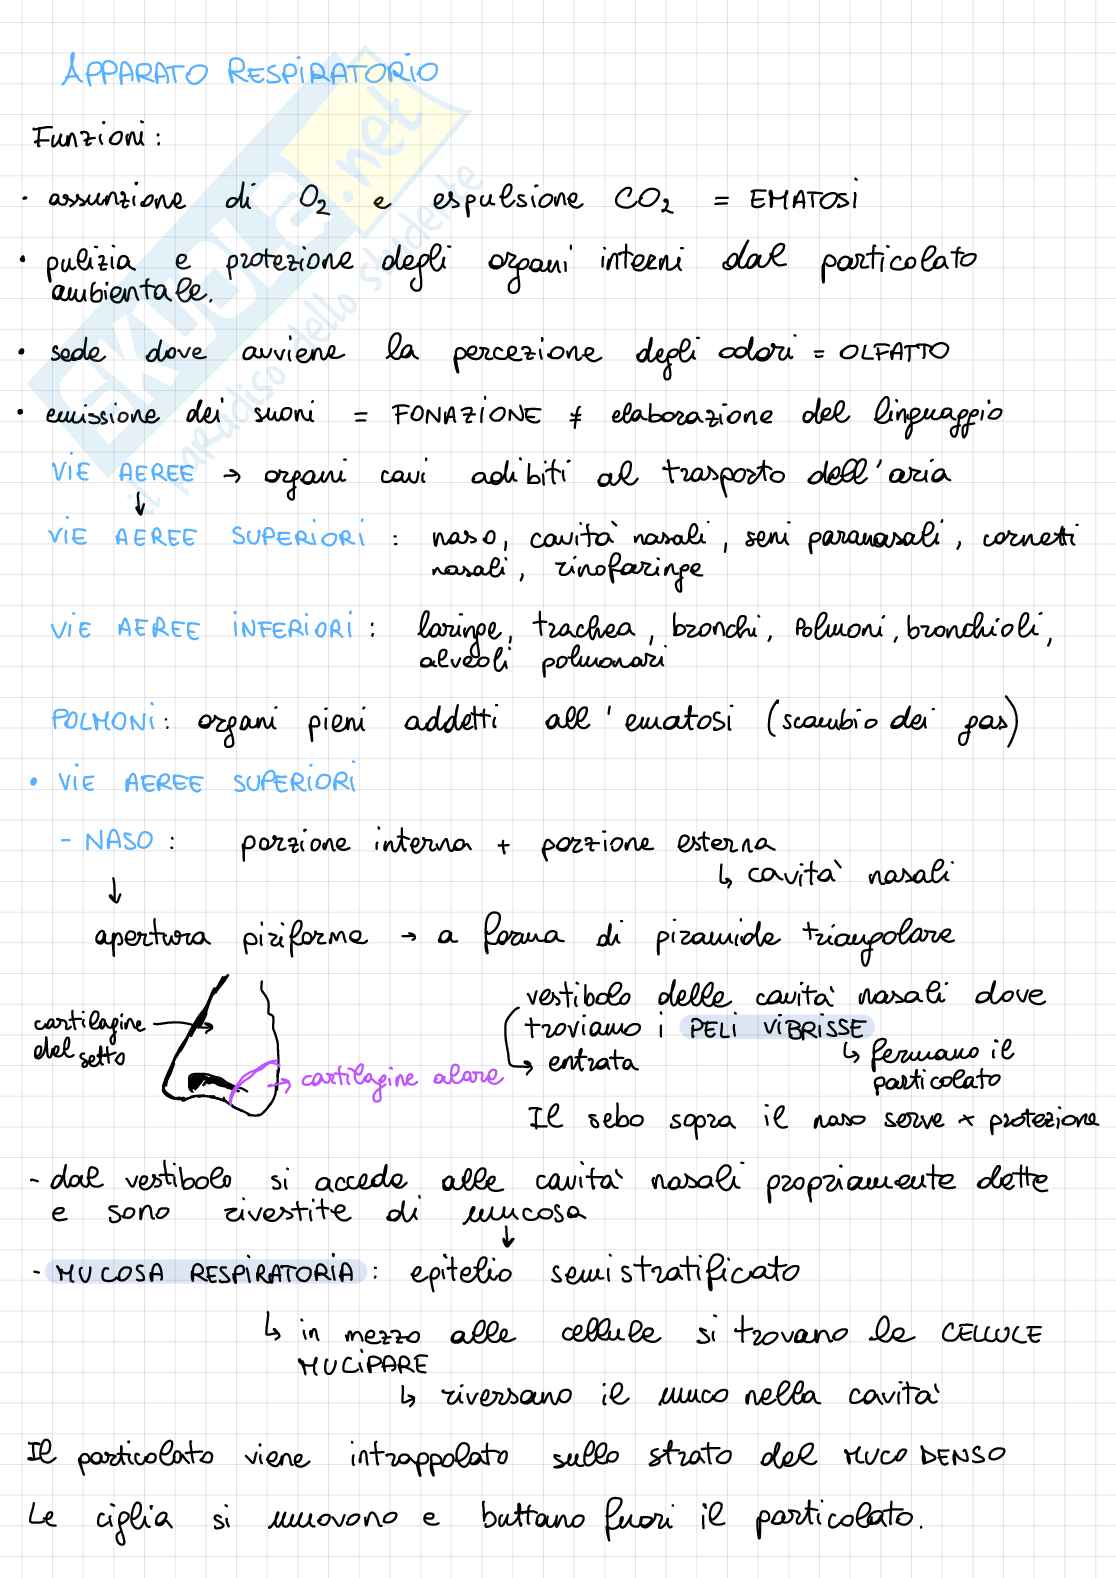 APPARATO RESPIRATORIO
Funzioni:
• assunzione di O2 e espulsione CO2 = EMATOSI
• pulizia e protezione degli organi interni dal particolato
ambientale.
• sede dove avviene la percezione degli odori = OLFATTO
• emissione dei suoni = FONAZIONE ≠ elaborazione del linguaggio
VIE AEREE → organi cavi adibiti al trasporto dell'aria
↓
VIE AEREE SUPERIORI : naso, cavità nasali, seni paranasali, cornetti
nasali, rinofaringe
VIE AEREE INFERIORI : laringe, trachea, bronchi, Polmoni, bronchioli,
alveoli polmonari
POLMONI: organi pieni addetti all'ematosi (scambio dei gas)
• VIE AEREE SUPERIORI
- NASO : porzione interna + porzione esterna
↳ cavità nasali
↓
apertura piriforme → a forma di piramide triangolare
vestibolo delle cavità nasali dove
troviamo i PELI VIBRISSE
→ entrata
↳ fermano il
particolato
cartilagine →
del setto
→ cartilagine alare
Il sebo sopra il naso serve x protezione
- dal vestibolo si accede alle cavità nasali propriamente dette
e sono rivestite di mucosa
↓
- MUCOSA RESPIRATORIA : epitelio semistratificato
↳ in mezzo alle cellule si trovano le CELLULE
MUCIPARE
↳ riversano il muco nella cavità
Il particolato viene intrappolato sullo strato del MUCO DENSO
Le ciglia si muovono e buttano fuori il particolato.
SKUOLA.net
il paradiso dello studente